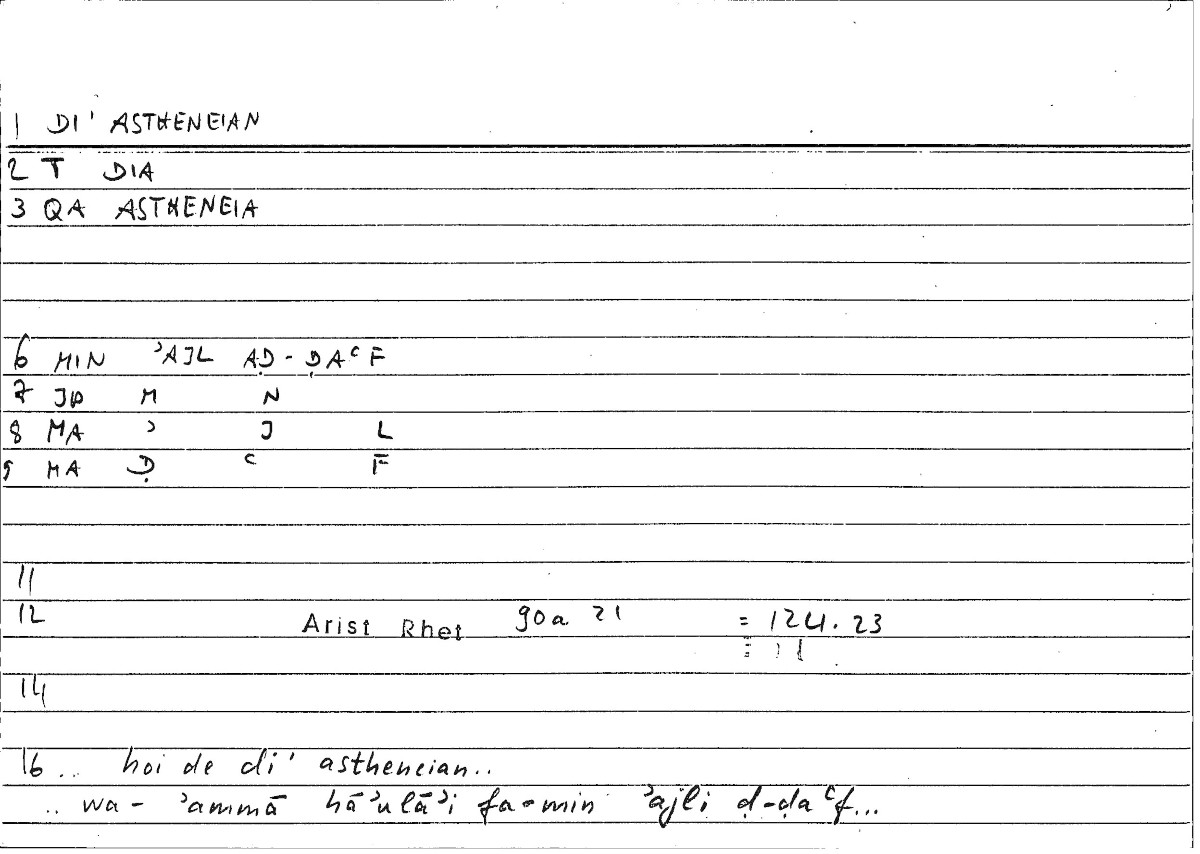 1 DI' ASTHENEIAN
2 T DIA
3 QA ASTHENEIA
6 MIN ʾAJL AḌ-ḌAʿF
7 JP M N
8 MA ʾ J L
9 MA Ḍ ʿ F
11
12 Arist Rhet 90a 21 = 124.23
14
16 .. hoi de di' astheneian..
.. wa- ʾammā hāʾulāʾi fa-min ʾajli ḍ-ḍaʿf...